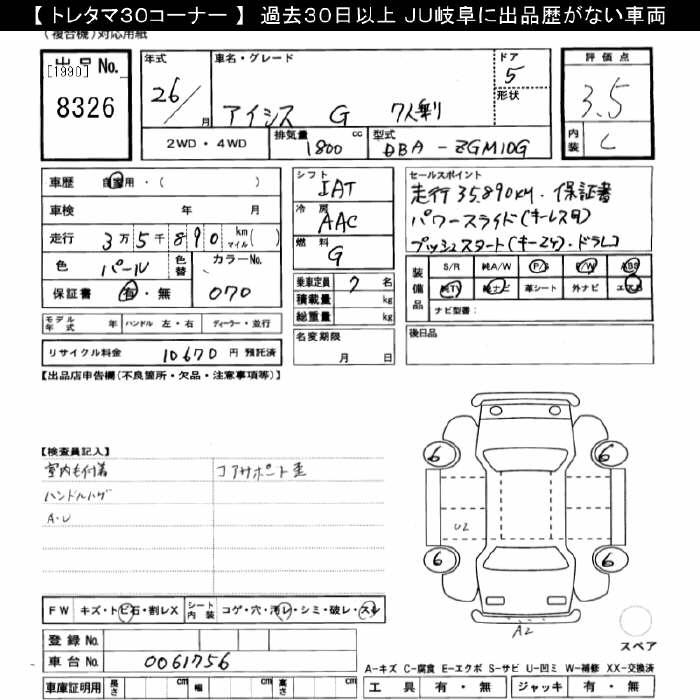 【 トレタマ30コーナー 】 過去30日以上 JU岐阜に出品歴がない車両
(複合機)対応用紙
出品No.
[1990]
8326
年式 26/ 月
車名・グレード
アイシス G 7人乗り
ドア 5
形状
評価点 3.5
内装 C
2WD・4WD
排気量 1800 cc
型式 DBA-ZGM10G
車歴 自家用・( )
車検 年 月
走行 3万5千890 km マイル( )
色 パール 色替
カラーNo. 070
保証書 有・無
モデル年式 年 ハンドル 左・右 ディーラー・並行
リサイクル料金 10670 円 預託済
シフト IAT
冷房 AAC
燃料 G
乗車定員 7 名
積載量 kg
総重量 kg
名変期限 月 日
セールスポイント
走行35.890KM. 保証書
パワースライド(キーレスタ)
プッシュスタート(キー2ケ)・ドラレコ
装備品
S/R 純A/W P/S P/W ABS
純TV 純ナビ 革シート 外ナビ エアB
ナビ型番:
後日品
【出品店申告欄(不良箇所・欠品・注意事項等)】
【検査員記入】
室内毛付着 コアサポート歪
ハンドルハゲ
A・U
6 6
U2
6 6
A2
スペア
FW キズ・トビ石・割レX シート内装 コゲ・穴・汚レ・シミ・破レ・スレ
登録No.
車台No. 0061756
車庫証明用 長さ cm 幅 cm 高さ cm
A-キズ C-腐食 E-エクボ S-サビ U-凹ミ W-補修 XX-交換済
工具 有・無 ジャッキ 有・無